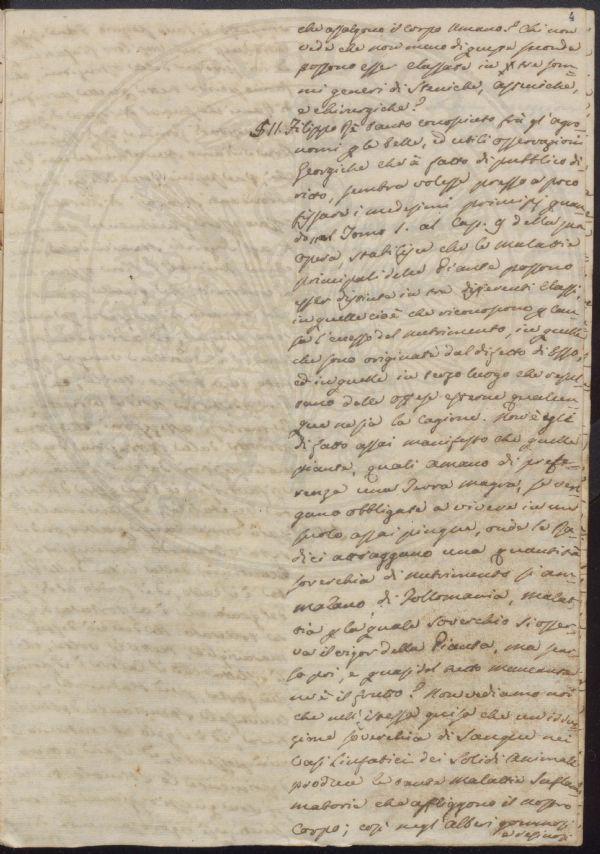 4
che assalgono il Corpo Umano? Chi non
vede che non meno di queste seconde
possono esser classate in tre som-
mi generi di Steniche, Asteniche,
e Chirurgiche?
§ II. Filippo Rè tanto conosciuto frà gl'agro-
nomi p le belle, ed utili osservazioni
Georgiche che à fatto di pubblico di-
ritto, sembra volesse presso a poco
fissare i medesimi principj quan-
do nel Tomo I. al Cap. 9 della sua
Opera stabilisce che le malattie
principali delle Piante possono
esser distinte in tre differenti Classi,
in quelle cioè che riconoscono p cau-
sa l'eccesso del nutrimento, in quelle
che sono originate dal difetto di Esso,
ed in quelle in terzo luogo che resul-
tano dalle offese esterne qualun-
que ne sia la cagione. Non è egli
di fatto assai manifesto che quelle
piante, quali amano di prefe-
renza una Terra magra, se ven-
gano obbligate a vivere in un
suolo assai pingue, onde le Ra-
dici attraggano una quantità
soverchia di nutrimento si am-
malano di Follomania, malat-
tia p la quale soverchio si osser-
va il vigor della Pianta, ma scar-
so poi, e quasi del tutto mancante
ne è il frutto? Non vediamo noi
che nell'istessa guisa che un
soverchia di Sangue nei
Vasi Linfatici dei Solidi Animali
produce le tante malattie Infiam-
matorie che affliggono il nostro
Corpo; così negl'Alberi gommosi
e resinosi